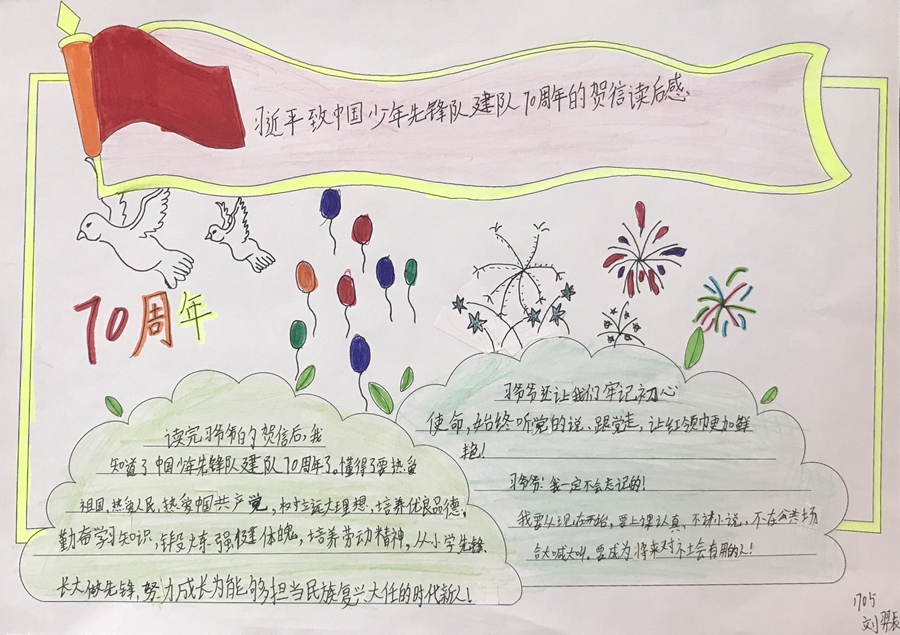 习近平致中国少年先锋队建队70周年的贺信读后感
70周年
读完习爷爷的贺信后,我
知道了中国少年先锋队建队70周年了。懂得了要热爱
祖国,热爱人民,热爱中国共产党,树立远大理想,培养优良品德,
勤奋学习知识,锻炼强健体魄,培养劳动精神,从小学先锋
长大做先锋,努力成长为能够担当民族复兴大任的时代新人!
习爷爷还让我们牢记初心
使命,始终听党的说,跟党走,让红领巾更加鲜
艳!
习爷爷!我一定不会忘记的!
我要从现在开始,要上课认真,不讲小说,不在公共场
合大喊大叫。要成为将来对社会有用的人!
1705
刘羿辰